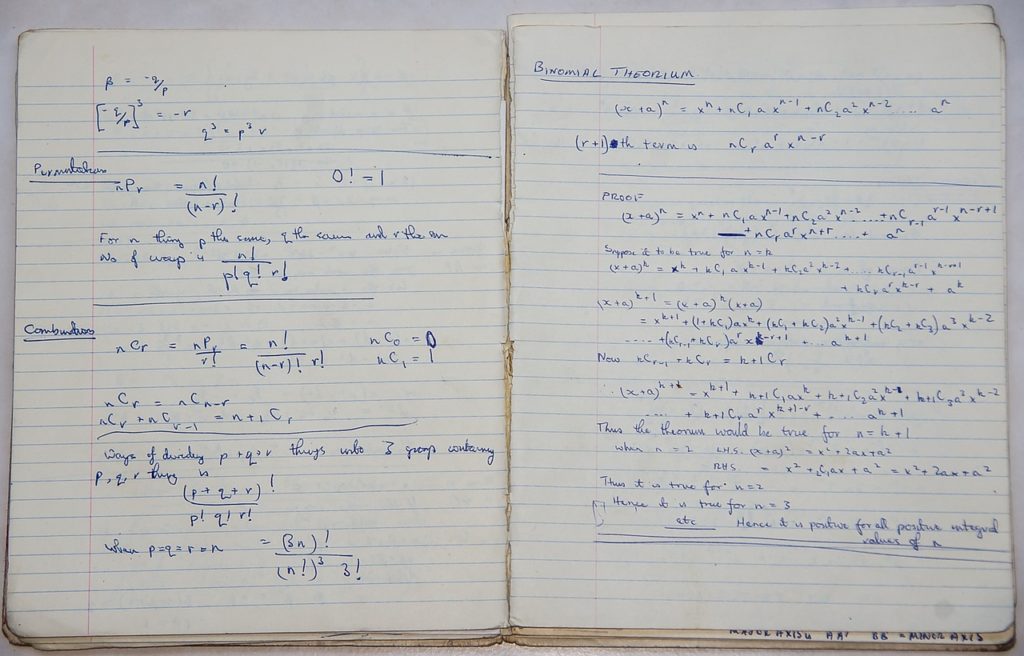 β = -q/p
[-q/p]³ = -r
q³ = p³ r
Permutations
nPr = n!/(n-r)! 0! = 1
For n things p the same, q the same and r the same
No of ways is n!/p! q! r!
Combinations
nCr = nPr/r! = n!/(n-r)! r! nC0 = 0
nC1 = 1
nCr = nCn-r
nCr + nCr-1 = n+1Cr
Ways of dividing p+q+r things into 3 groups containing
p, q, r things is
(p+q+r)!/p! q! r!
When p=q=r=n = (3n)!/(n!)³ 3!
BINOMIAL THEORIUM
(x+a)ⁿ = xⁿ + nC1 a xⁿ⁻¹ + nC2 a² xⁿ⁻² .... aⁿ
(r+1)th term is nCr aʳ xⁿ⁻ʳ
PROOF
(x+a)ⁿ = xⁿ + nC1 a xⁿ⁻¹ + nC2 a² xⁿ⁻² ..... + nCr-1 aʳ⁻¹ xⁿ⁻ʳ⁺¹
+ nCr aʳ xⁿ⁺ʳ .... + aⁿ
Suppose it to be true for n=k
(x+a)ᵏ = xᵏ + kC1 a xᵏ⁻¹ + kC2 a² xᵏ⁻² + .... kCr-1 aʳ⁻¹ xᵏ⁻ʳ⁺¹
+ kCr aʳ xᵏ⁻ʳ + aᵏ
(x+a)ᵏ⁺¹ = (x+a)ᵏ (x+a)
= xᵏ⁺¹ + (1+kC1)axᵏ + (kC1 + kC2)a² xᵏ⁻¹ + (kC2 + kC3)a³ xᵏ⁻²
..... + (kCr-1 + kCr)aʳ xᵏ⁻ʳ⁺¹ + ... aᵏ⁺¹
Now kCr-1 + kCr = k+1Cr
∴ (x+a)ᵏ⁺¹ = xᵏ⁺¹ + k+1C1 axᵏ + k+1C2 a² xᵏ⁻¹ + k+1C3 a³ xᵏ⁻²
..... + k+1Cr aʳ xᵏ⁺¹⁻ʳ + .... aᵏ⁺¹
Thus the theorium would be true for n=k+1
when n = 2 L.H.S. (x+a)² = x²+2ax+a²
RHS = x² + 2C1ax + a² = x²+2ax+a²
Thus it is true for n=2
Hence it is true for n = 3
etc Hence it is positive for all positive integral
values of n
MAJOR AXIS is AA' BB = MINOR AXIS